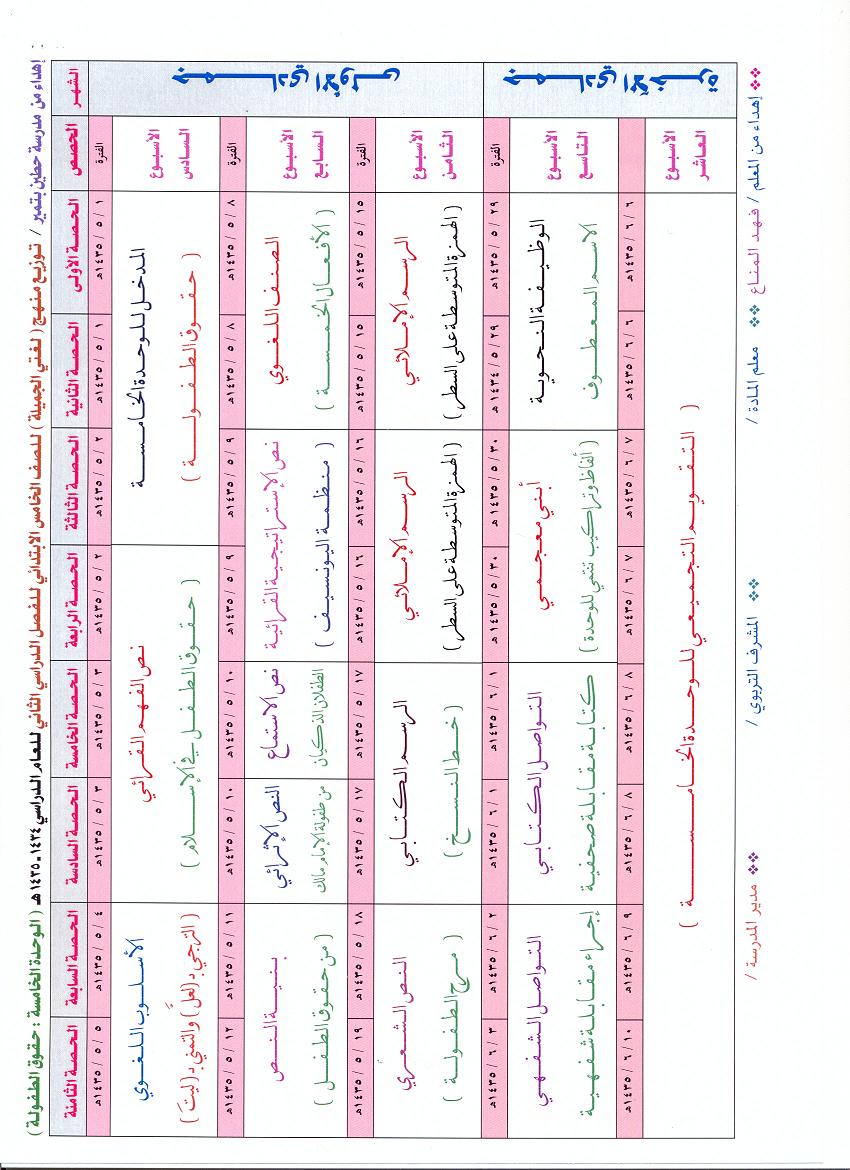 إهداء من مدرسة حطين بتمير / توزيع منهج ( لغتي الجميلة ) للصف الخامس الابتدائي للفصل الدراسي الثاني للعام الدراسي ١٤٣٤ـ ١٤٣٥هـ ( الوحدة الخامسة : حقوق الطفولة )
الشهر الحصص الحصة الأولى الحصة الثانية الحصة الثالثة الحصة الرابعة الحصة الخامسة الحصة السادسة الحصة السابعة الحصة الثامنة
جمادي الأولى
الفترة ١ / ٥ / ١٤٣٥هـ ١ / ٥ / ١٤٣٥هـ ٢ / ٥ / ١٤٣٥هـ ٢ / ٥ / ١٤٣٥هـ ٣ / ٥ / ١٤٣٥هـ ٣ / ٥ / ١٤٣٥هـ ٤ / ٥ / ١٤٣٥هـ ٥ / ٥ / ١٤٣٥هـ
الأسبوع السادس
المدخل للوحدة الخامسة
( حقوق الطفولة )
نص الفهم القرائي
( حقوق الطفل في الإسلام )
الأسلوب اللغوي
( الترجي بـ(لعلَّ) والتمني بـ(ليتَ) )
الفترة ٨ / ٥ / ١٤٣٥هـ ٨ / ٥ / ١٤٣٥هـ ٩ / ٥ / ١٤٣٥هـ ٩ / ٥ / ١٤٣٥هـ ١٠ / ٥ / ١٤٣٥هـ ١٠ / ٥ / ١٤٣٥هـ ١١ / ٥ / ١٤٣٥هـ ١٢ / ٥ / ١٤٣٥هـ
الأسبوع السابع
الصنف اللغوي
( الأفعال الخمسة )
نص الإستراتيجية القرائية
( منظمة اليونسيف )
نص الاستماع
الطفلان الذكيان
النص الإثرائي
من طفولة الإمام مالك
بنية النص
( من حقوق الطفل )
الفترة ١٥ / ٥ / ١٤٣٥هـ ١٥ / ٥ / ١٤٣٥هـ ١٦ / ٥ / ١٤٣٥هـ ١٦ / ٥ / ١٤٣٥هـ ١٧ / ٥ / ١٤٣٥هـ ١٧ / ٥ / ١٤٣٥هـ ١٨ / ٥ / ١٤٣٥هـ ١٩ / ٥ / ١٤٣٥هـ
الأسبوع الثامن
الرسم الإملائي
(الهمزة المتوسطة على السطر )
الرسم الإملائي
(الهمزة المتوسطة على السطر )
الرسم الكتابي
( خط النسخ )
النص الشعري
( مرح الطفولة )
جمادي الآخرة
الفترة ٢٩ / ٥ / ١٤٣٥هـ ٢٩ / ٥ / ١٤٣٤هـ ٣٠ / ٥ / ١٤٣٥هـ ٣٠ / ٥ / ١٤٣٥هـ ١ / ٦ / ١٤٣٥هـ ١ / ٦ / ١٤٣٥هـ ٢ / ٦ / ١٤٣٥هـ ٣ / ٦ / ١٤٣٥هـ
الأسبوع التاسع
الوظيفة النحوية
الاسم المعطوف
أبني معجمي
( ألفاظ وتراكيب تنتمي للوحدة )
التواصل الكتابي
كتابة مقابلة صحفية
التواصل الشفهي
إجراء مقابلة شفهية
٦ / ٦ / ١٤٣٥هـ ٦ / ٦ / ١٤٣٥هـ ٧ / ٦ / ١٤٣٥هـ ٧ / ٦ / ١٤٣٥هـ ٨ / ٦ / ١٤٣٥هـ ٨ / ٦ / ١٤٣٥هـ ٩ / ٦ / ١٤٣٥هـ ١٠ / ٦ / ١٤٣٥هـ
الأسبوع العاشر
( التقويم التجميعي للوحدة الخامسة )
إهداء من المعلم / فهد المناع معلم المادة / المشرف التربوي / مدير المدرسة /